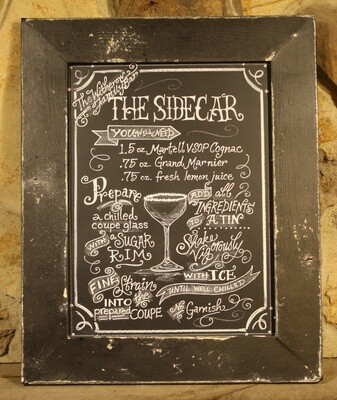 The Witherow
Family Bar
THE SIDECAR
YOU WILL NEED
1.5 oz. Martell VSOP Cognac
.75 oz. Grand Marnier
.75 oz. fresh lemon juice
Prepare
a chilled
coupe glass
WITH a SUGAR
RIM
ADD all
INGREDIENTS
to A TIN
Shake
Vigorously
WITH ICE
UNTIL WELL CHILLED
FINE Strain
INTO the
prepared COUPE
No Garnish.